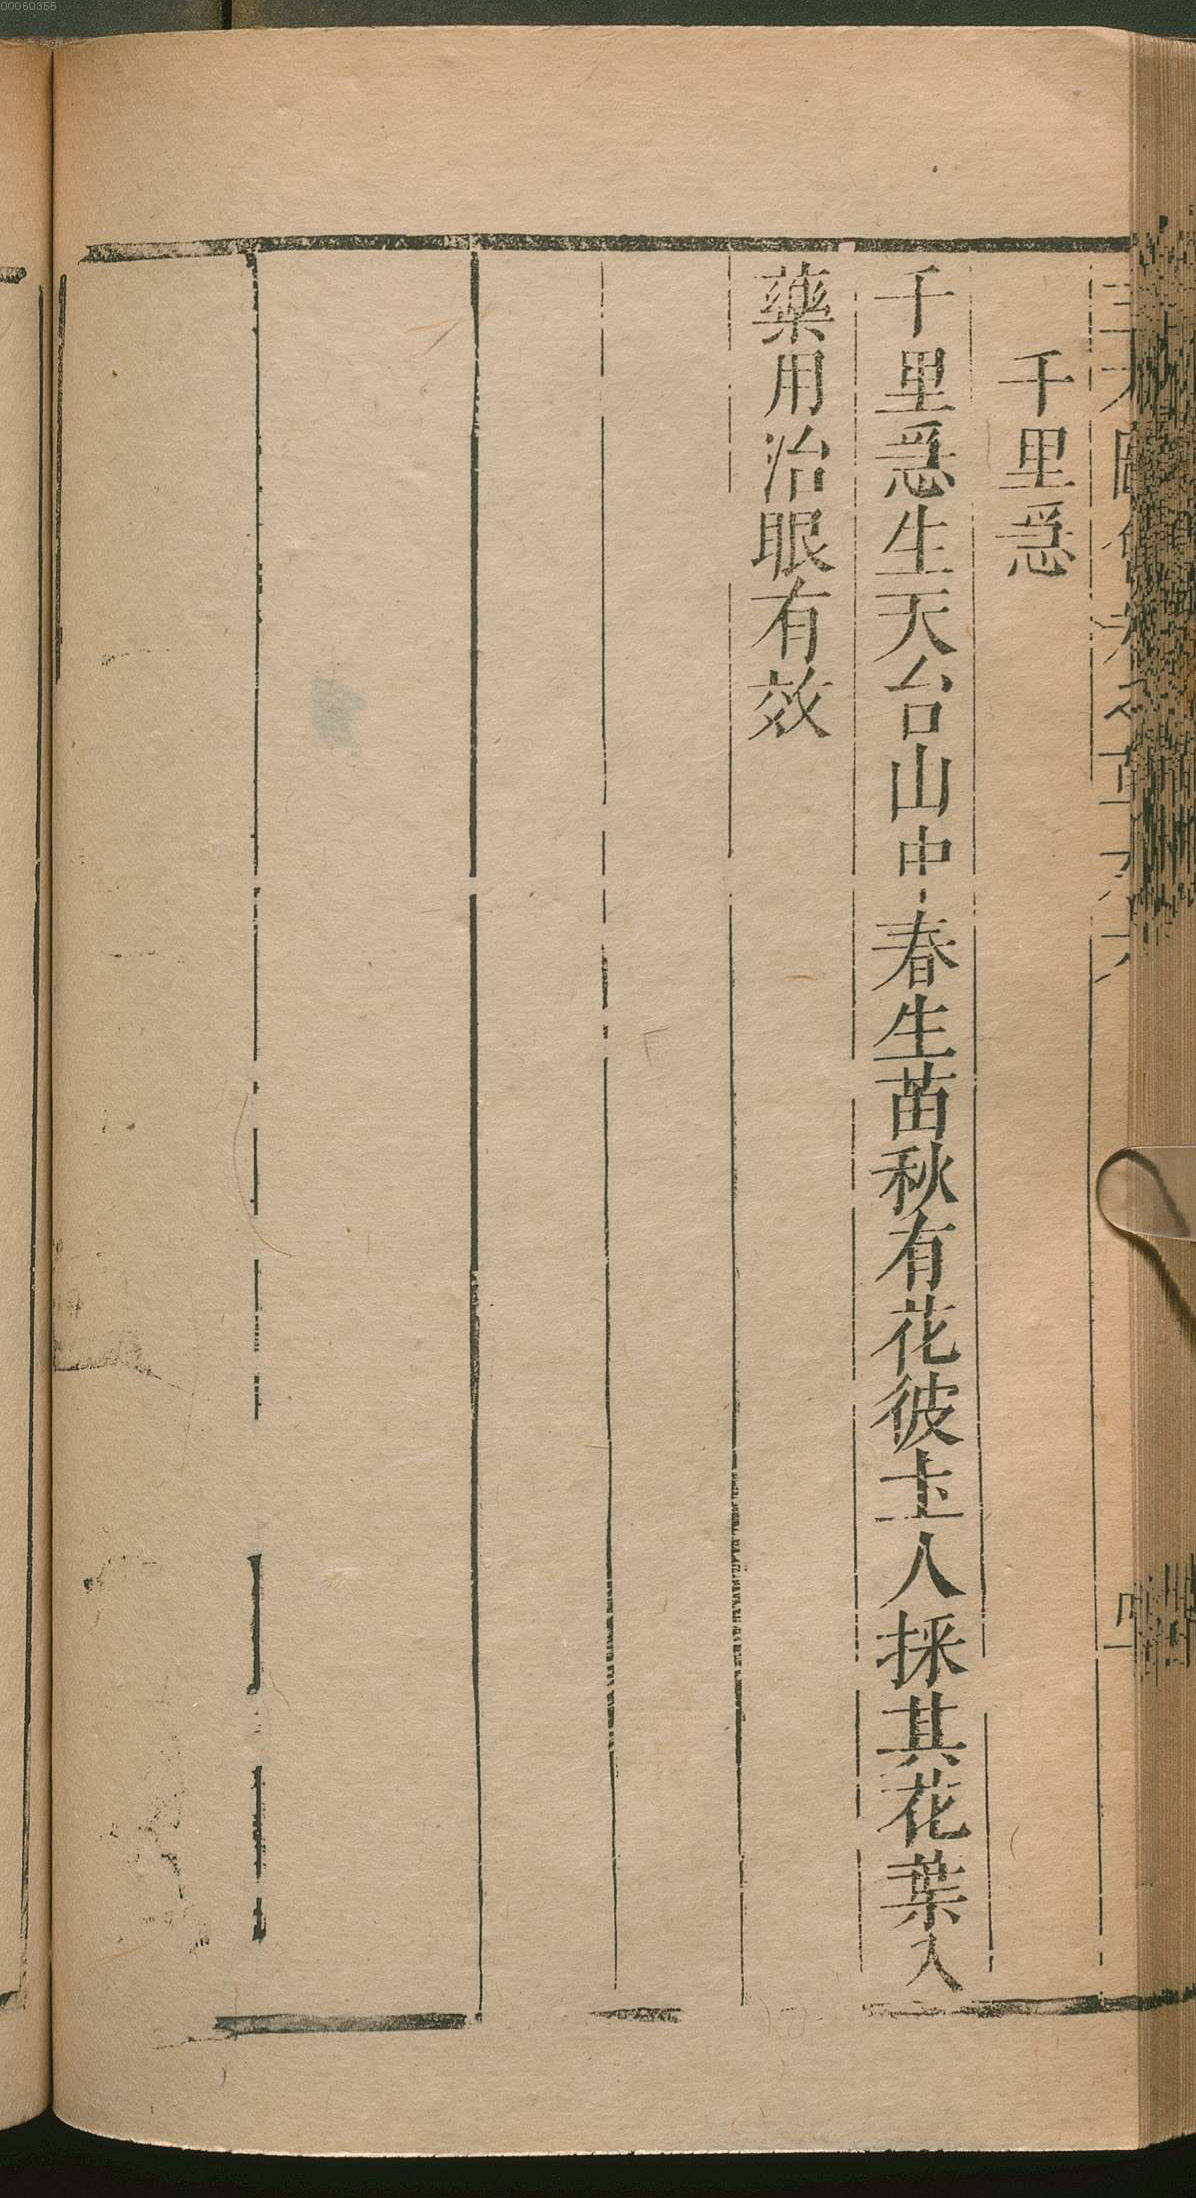 00060355
千里急
千里急生天台山中春生苗秋有花彼𡈽人採其花葉入
藥用治眼有效